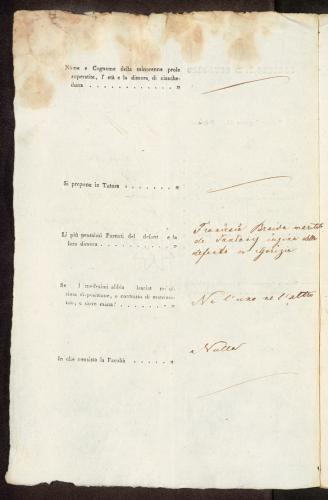 Nome e Cognome della minorenne prole
superstite, l' età e la dimora, di ciasche-
duna . . . . . . . . . . . . . . . . „
Si propone in Tutore . . . . . . . . . „
Li più prossimi Parenti del defunt e la
loro dimora . . . . . . . . . . . . . „
Francesca maritata
de cugina della
defunta in Gorizia
Se i medesimi abbia lasciat
tima disposizione, o contratto di matrimo-
nio, e dove esista? . . . . . . . . . . „
Ne l'uno ne l'altro
In che consista la Facoltà . . . . . . „
Nulla